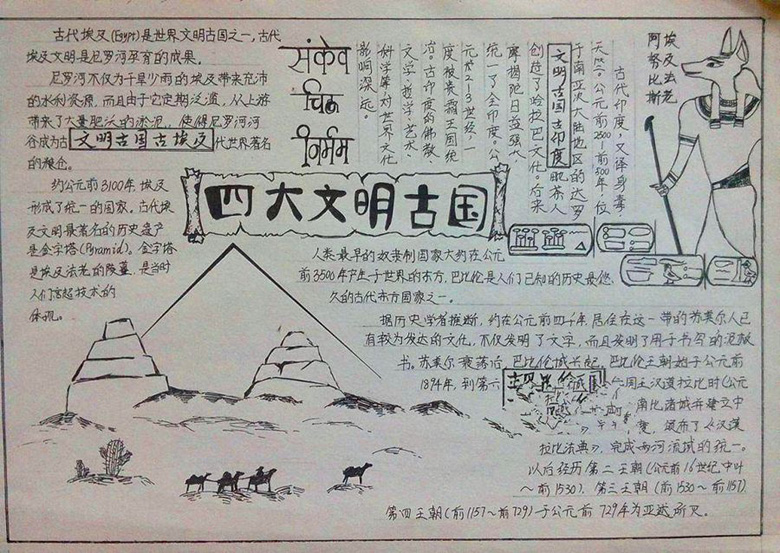 古代埃及(Egypt)是世界文明古国之一,古代
埃及文明是尼罗河孕育的成果。
尼罗河不仅为干旱少雨的埃及带来充沛
的水利资源,而且由于它定期泛滥,从上游
带来了大量肥沃的淤泥,使得尼罗河河
谷成为古文明古国古埃及代世界著名
的粮仓。
约公元前3100年,埃及
形成了统一的国家。古代埃
及文明最著名的历史遗产
是金字塔(Pyramid)。金字塔
是埃及法老的陵墓,是当时
人们高超技术的
体现。
四大文明古国
古代印度,又译身毒,
天竺。公元前2500~前500年,位
于南亚次大陆地区的达罗
文明古国古印度毗荼人
创造了哈拉巴文化。后来
摩揭陀日益强大,
统一了全印度。公
元前2-3世纪一
度被
王国统
治。古印度的佛教、
文学、哲学、艺术、
科学等对世界文化
影响深远。
埃及法老
阿努比斯
人类最早的奴隶制国家大约在公元
前3500年产生于世界的东方,巴比伦是人们已知的历史最悠
久的古代东方国家之一。
据历史学者推断,约在公元前四千年,居住在这一带的苏美尔人已
有较为发达的文化,不仅发明了文字,而且发明了用于书写的泥板
书。苏美尔衰落后,巴比伦城兴起。巴比伦王朝始于公元前
1894年,到第六
国王汉谟拉比时(公元
南北诸城并建立中
颁布了《汉谟
拉比法典》,完成两河流域的统一。
以后经历第二王朝(公元前16世纪中叶
~前1530)、第三王朝(前1530~前1157)
第四王朝(前1157~前729)于公元前729年为亚述所灭。